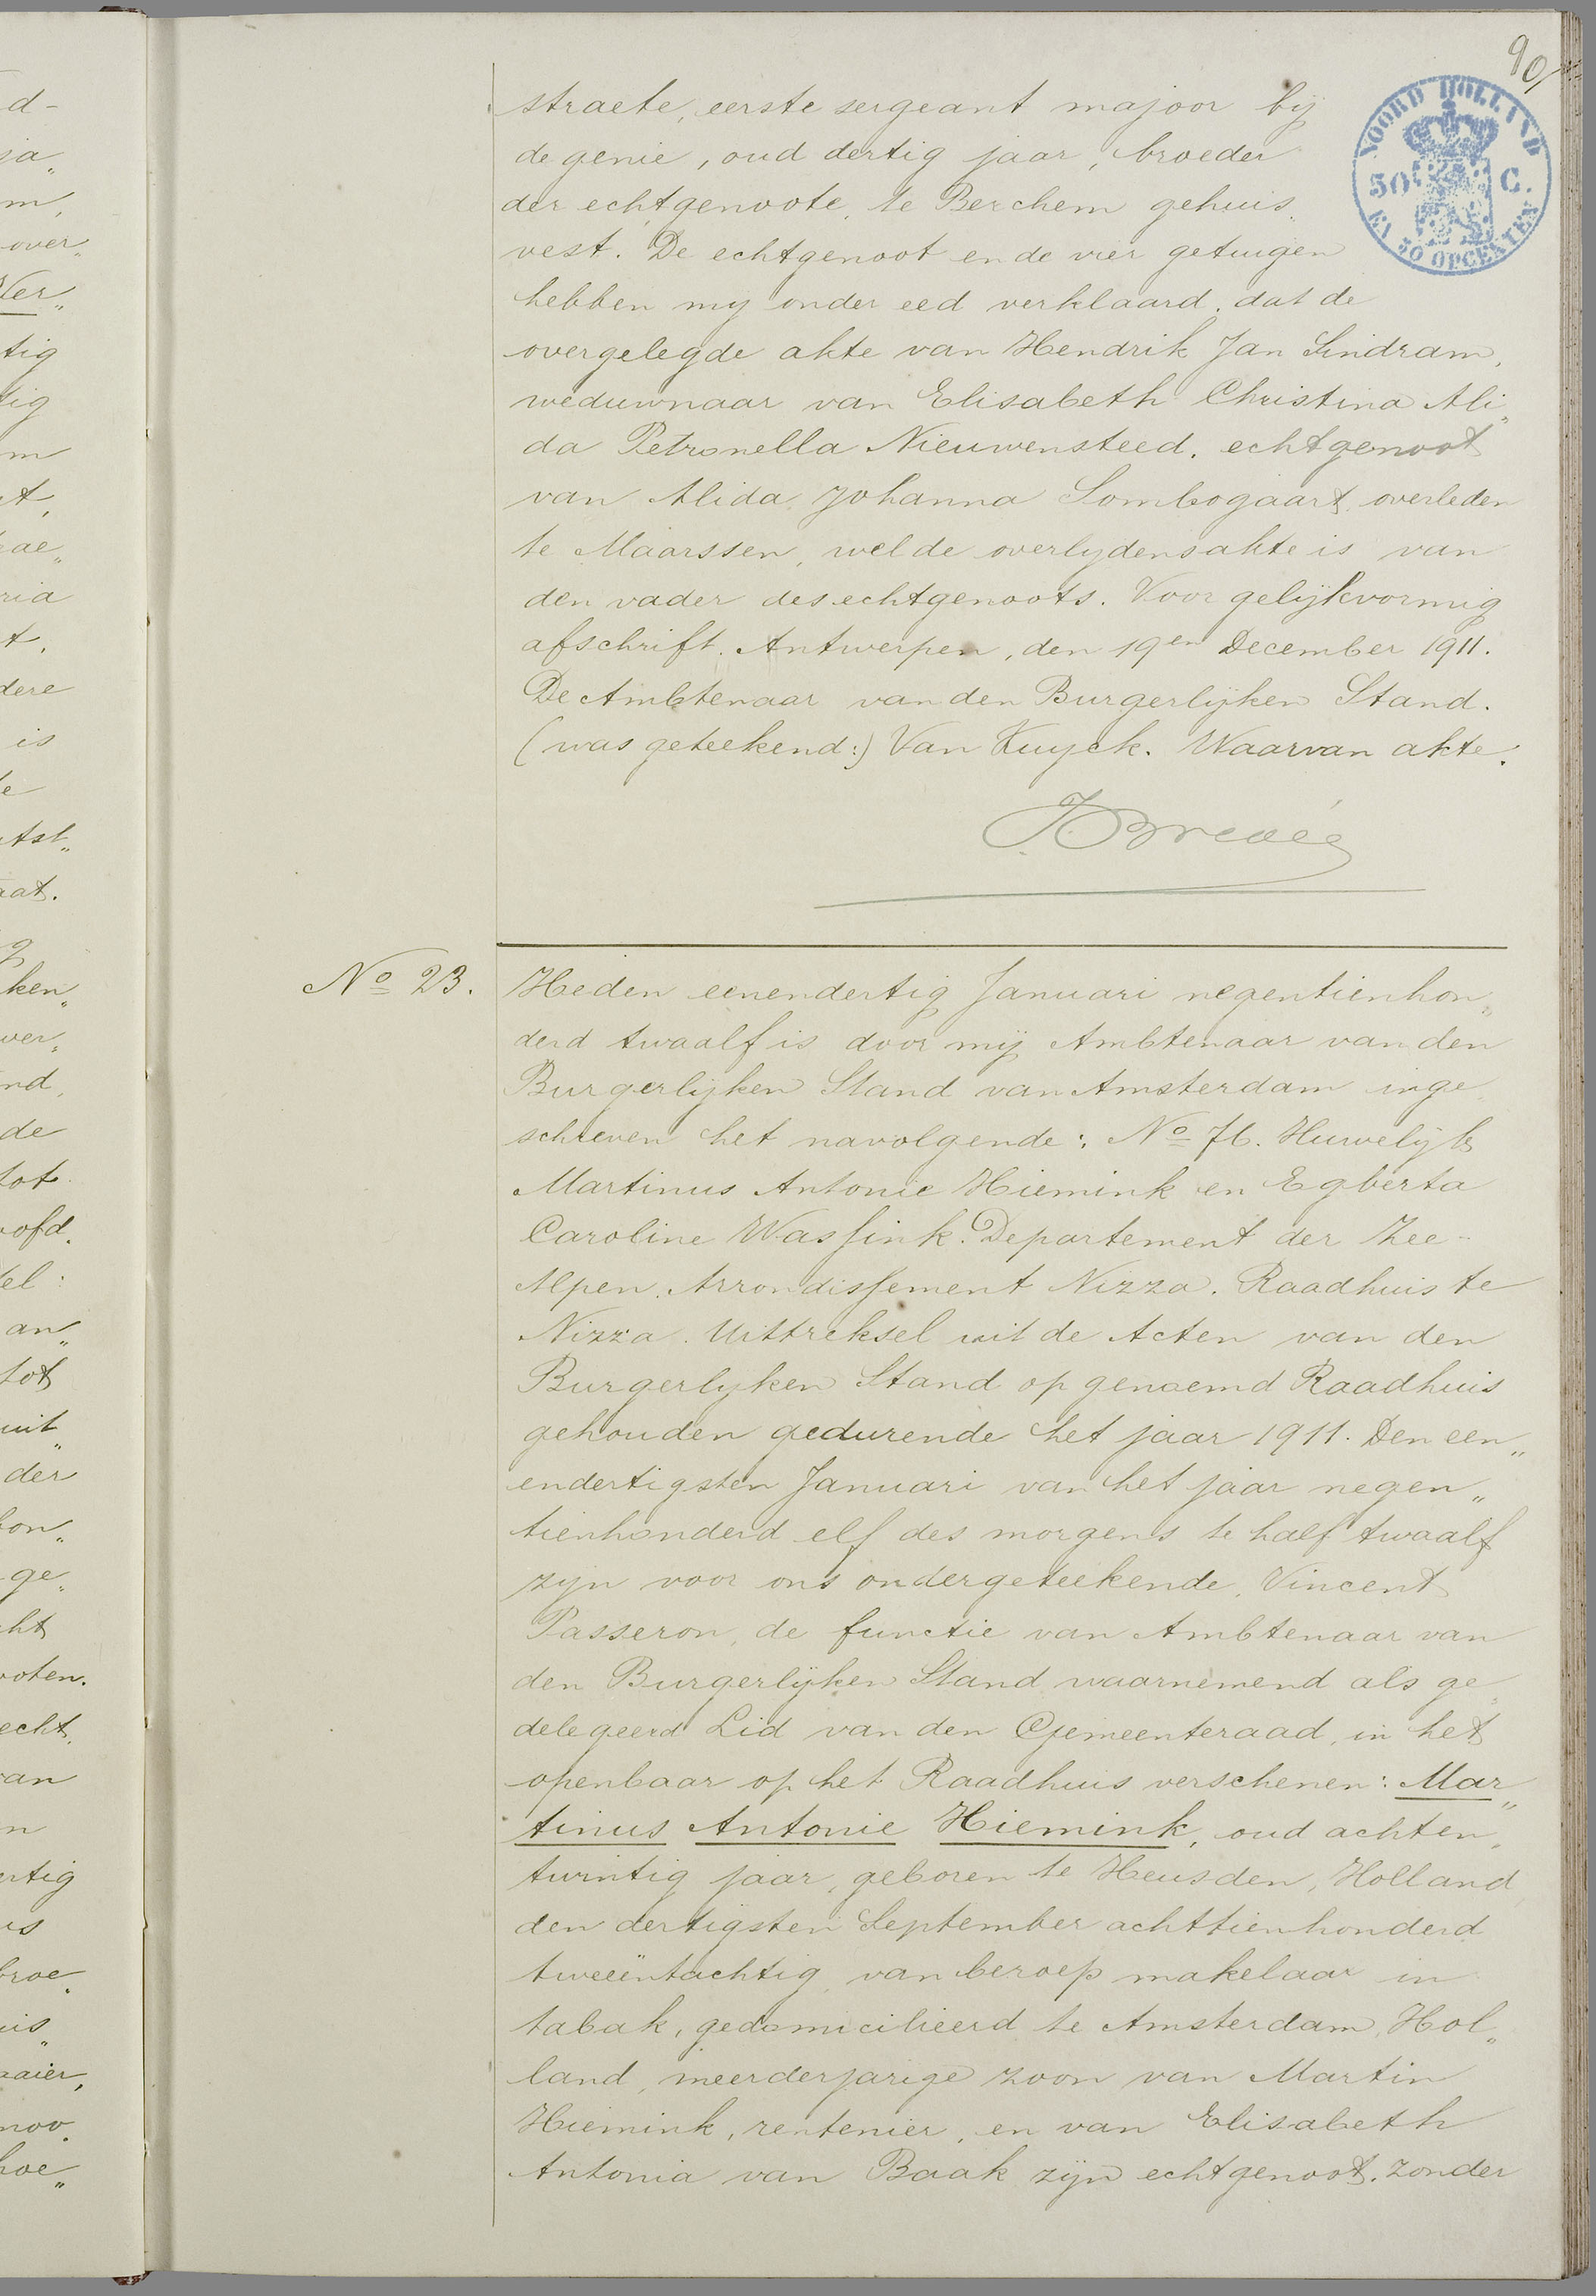 90
NOORD HOLLAND
50 C.
EN 50 OPCENTEN
straete, eerste sergeant majoor bij
de genie, oud dertig jaar, broeder
der echtgenoote, te Berchem gehuis„
vest. De echtgenoot en de vier getuigen
hebben my onder eed verklaard, dat de
overgelegde akte van Hendrik Jan Sindram,
weduwnaar van Elisabeth Christina Ali„
da Petronella Nieuwensteed, echtgenoot
van Alida Johanna Lombogaart, overleden
te Maarssen, wel de overlydensakte is van
den vader des echtgenoots. Voor gelijkvormig
afschrift. Antwerpen, den 19en December 1911.
De Ambtenaar van den Burgerlijken Stand.
(was geteekend:) Van Kuyck. Waarvan akte.
No 23.
Heden eenendertig Januari negentienhon„
derd twaalf is door mij Ambtenaar van den
Burgerlijken Stand van Amsterdam inge„
schreven het navolgende: No 76. Huwelijk
Martinus Antonie Hiemink en Egberta
Caroline Wassink. Departement der Zee-
Alpen. Arrondissement Nizza. Raadhuis te
Nizza. Uittreksel uit de Acten van den
Burgerlyken Stand op genoemd Raadhuis
gehouden gedurende het jaar 1911. Den een„
endertigsten Januari van het jaar negen„
tienhonderd elf des morgens te half twaalf
zyn voor ons ondergeteekende, Vincent
Passeron, de functie van Ambtenaar van
den Burgerlijken Stand waarnemend als ge„
delegeerd Lid van den Gemeenteraad, in het
openbaar op het Raadhuis verschenen: Mar„
tinus Antonie Hiemink, oud achten„
twintig jaar, geboren te Heusden, Holland,
den dertigsten September achttienhonderd
tweeëntachtig, van beroep makelaar in
tabak, gedomicilieerd te Amsterdam, Hol„
land, meerderjarige zoon van Martin
Hiemink, rentenier, en van Elisabeth
Antonia van Baak zijn echtgenoot, zonder